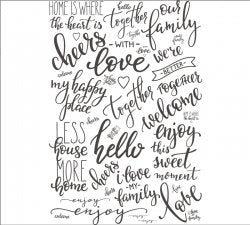 HOME IS WHERE
the heart is
hello
together
our
family
cheers
- WITH -
love
love
we're
BETTER
together
my happy
place
together
welcome
LESS
house
MORE
home
hello
enjoy
this
sweet
moment
cheers
i love
- MY -
family
for
love
enjoy
enjoy